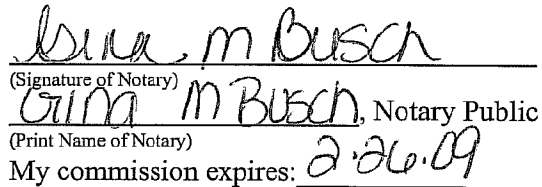 Gina M Busch
(Signature of Notary)
Gina M Busch, Notary Public
(Print Name of Notary)
My commission expires: 2.26.09